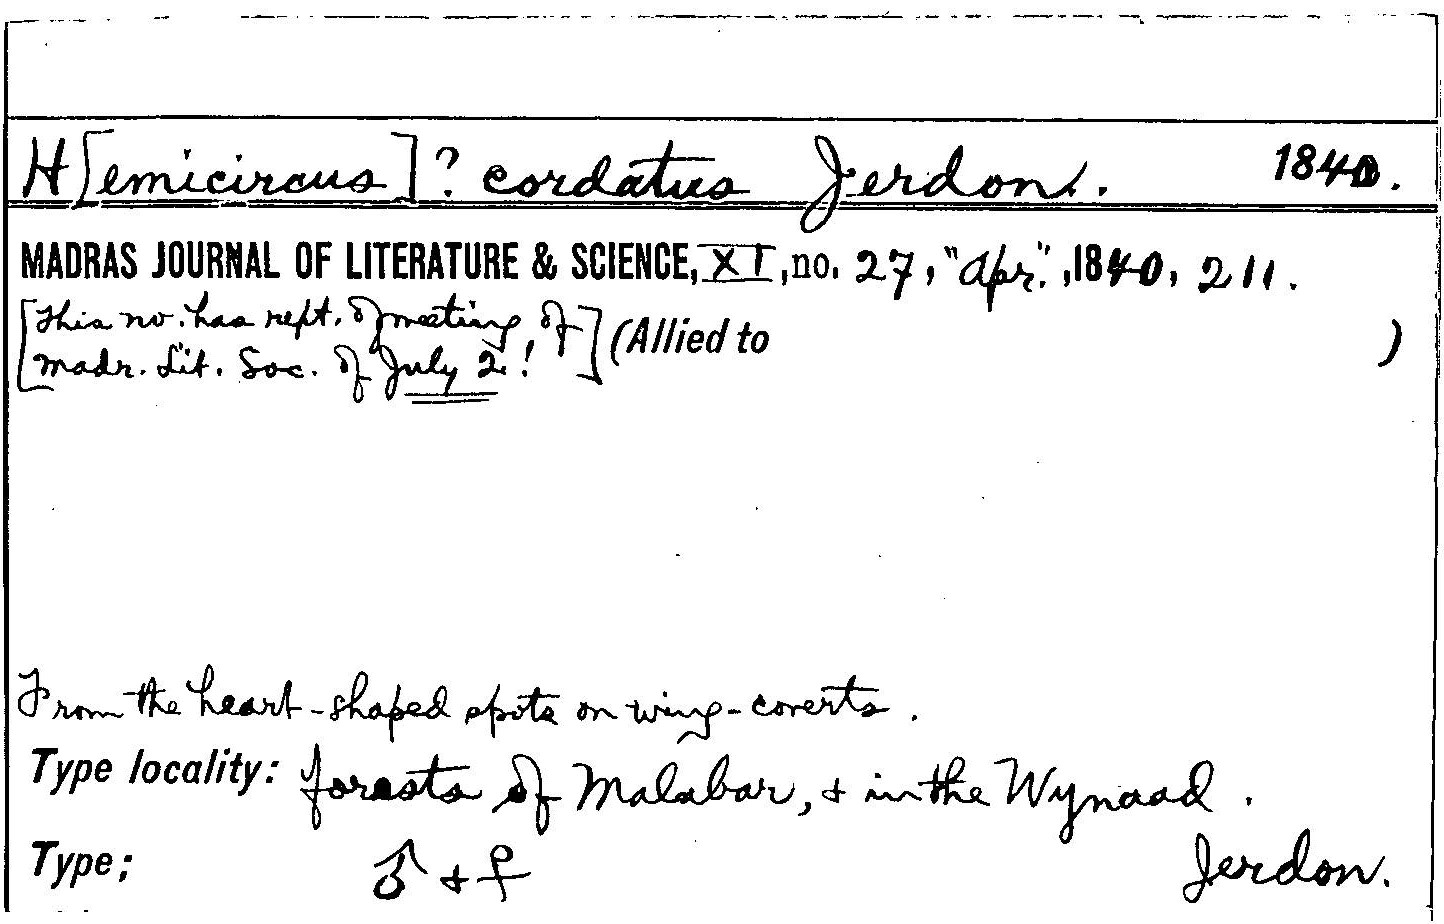 H[emicircus]? cordatus Jerdon. 1840.
MADRAS JOURNAL OF LITERATURE & SCIENCE, XI, no. 27, "Apr.", 1840, 211.
[This no. has rept. of meeting of
Madr. Lit. Soc. of July 2!] (Allied to )
From the heart-shaped spots on wing-coverts.
Type locality: forests of Malabar, & in the Wynaad.
Type; ♂ & ♀ Jerdon.